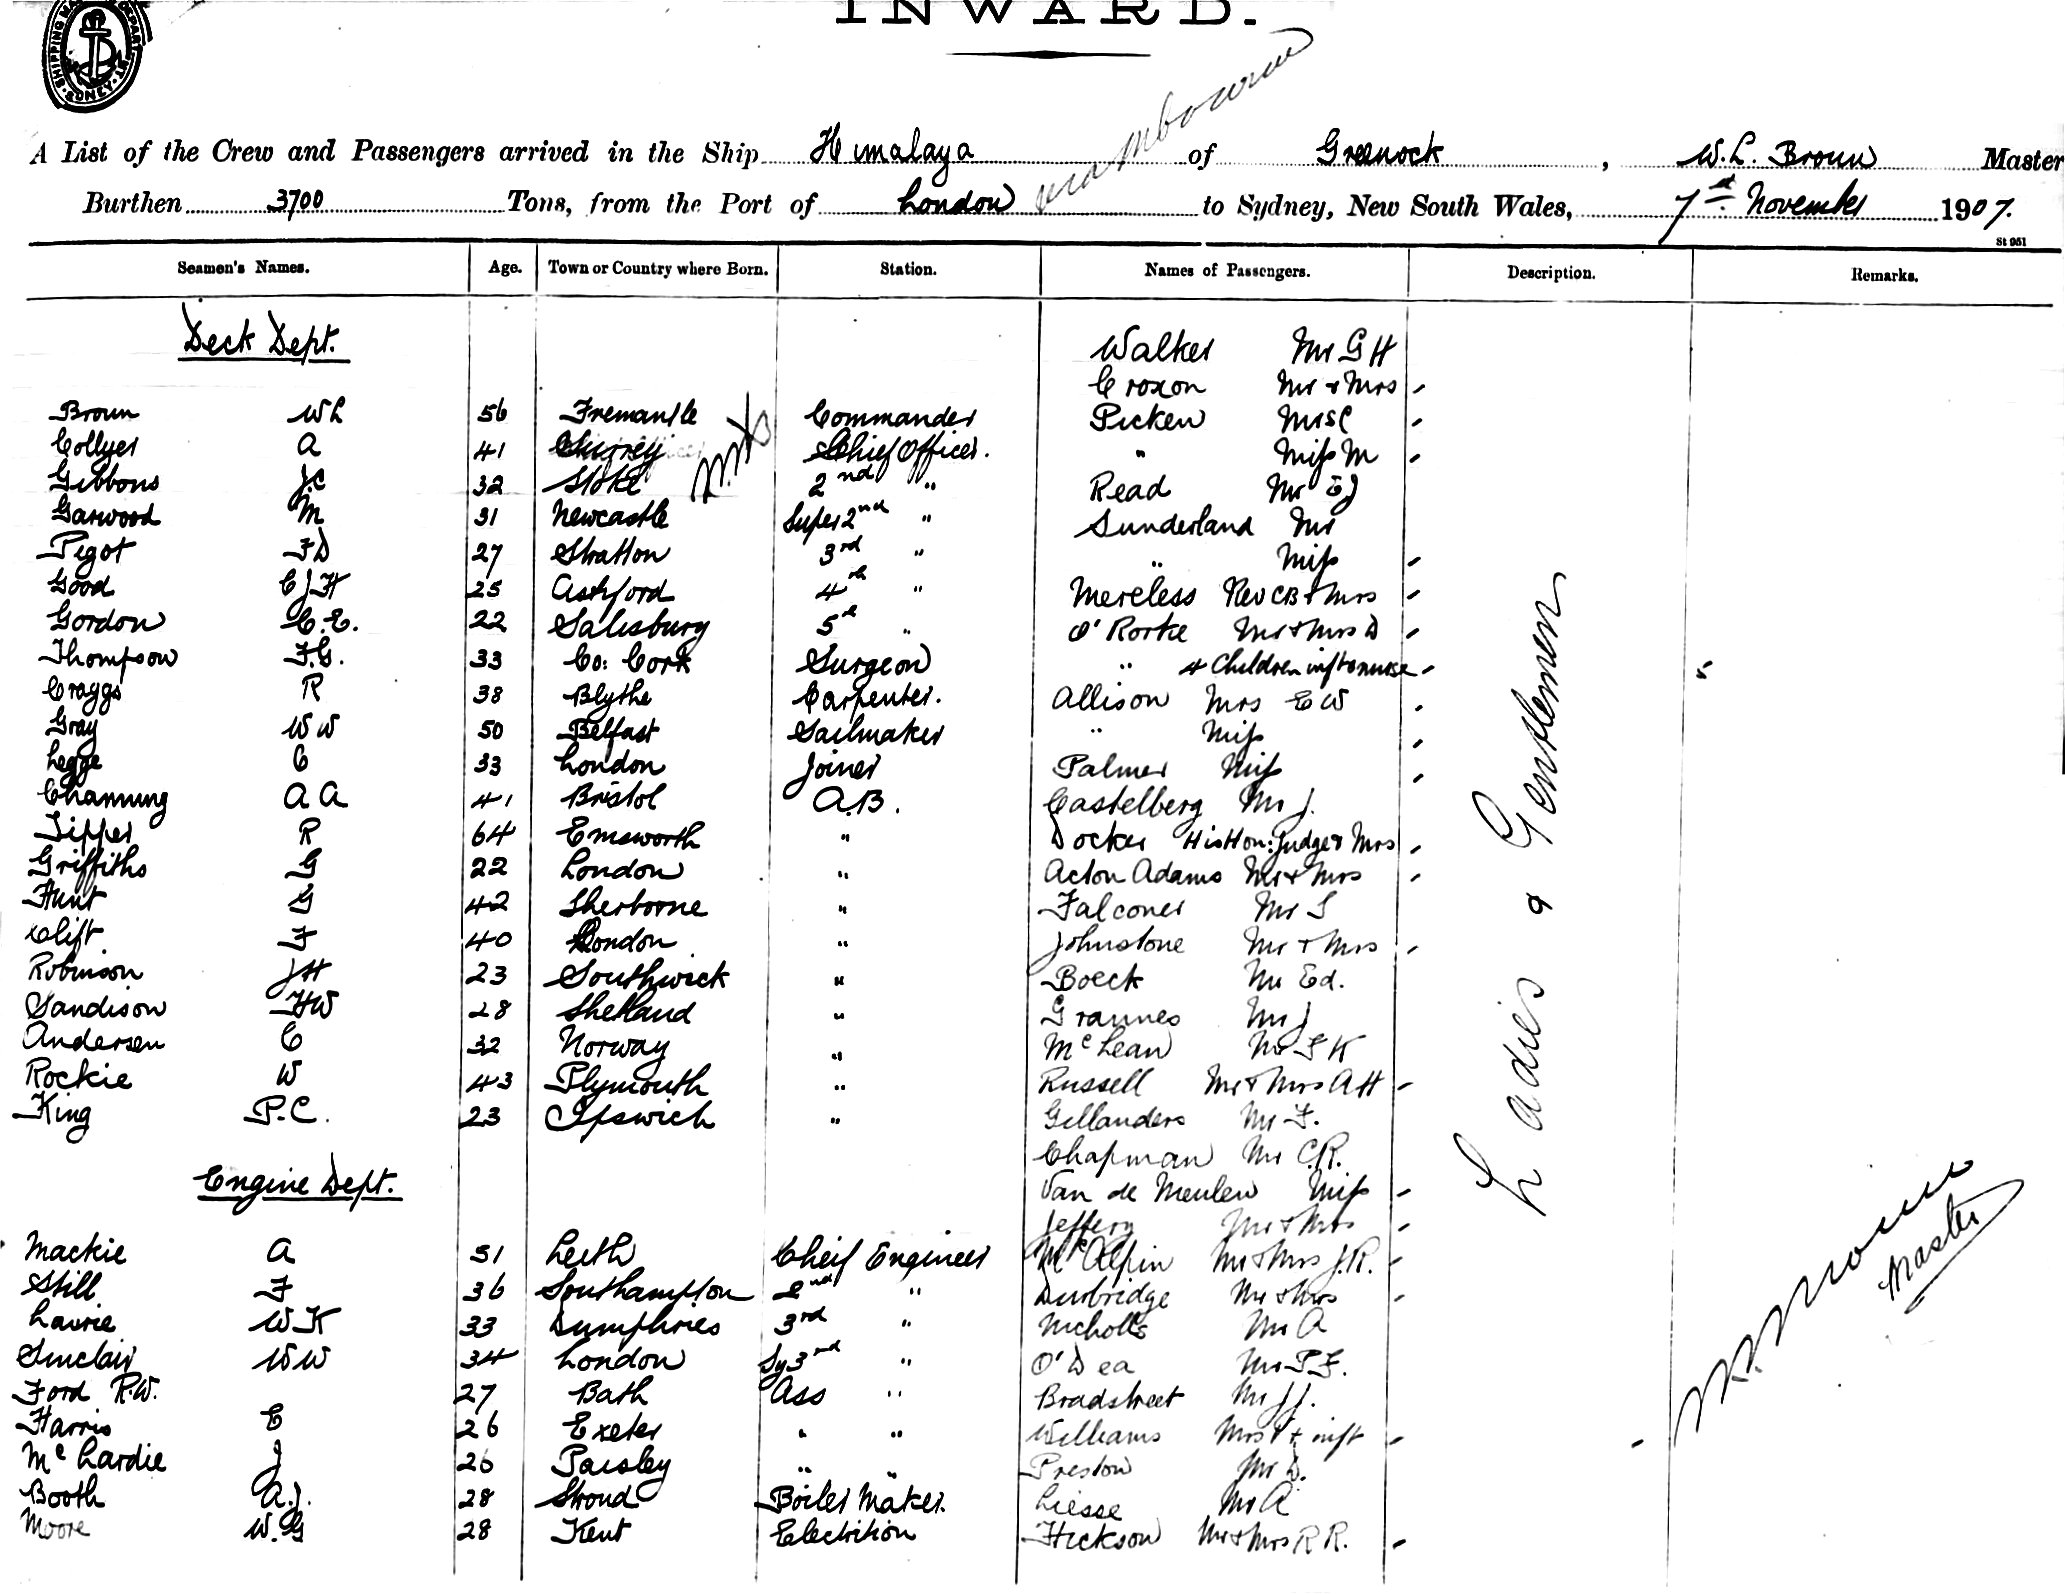 SHIPPING MASTER'S DEPARTMENT SYDNEY
INWARD.
via Melbourne
A List of the Crew and Passengers arrived in the Ship Himalaya of Greenock, W.L. Broun Master
Burthen 3700 Tons, from the Port of London to Sydney, New South Wales, 7th November 1907.
St 951
Seamen's Names. Age. Town or Country where Born. Station. Names of Passengers. Description. Remarks.
Deck Dept. Walker Mr G H
Croxon Mr & Mrs
Broun W L 56 Fremantle Commander Picken Mrs C
Collyer A 41 Surrey Chief Officer. " Miss M
Gibbons J.C 32 Stoke 2nd " Read Mr E J
Garwood M 31 Newcastle Super 2nd " Sunderland Mr
Pigot F D 27 Stratton 3rd " " Miss
Good C J H 25 Ashford 4th " Mereless Rev C B & Mrs
Gordon C. E. 22 Salisbury 5th " O'Rorke Mr & Mrs D
Thompson F. G. 33 Co: Cork Surgeon " 4 Children inft & nurse
Craggs R 38 Blythe Carpenter. Allison Mrs E W
Gray W W 50 Belfast Sailmaker " Miss
Legge C 33 London Joiner Palmer Miss
Channing A A 41 Bristol A.B. Castelberg Mr J.
Tipper R 64 Emsworth " Docker His Hon: Judge & Mrs
Griffiths G 22 London " Acton Adams Mr & Mrs
Hunt G 42 Sherborne " Falconer Mr S
Clift F 40 London " Johnstone Mr & Mrs
Robinson J H 23 Southwick " Boeck Mr Ed.
Sandison H W 28 Shetland " Grannes Mr J
Andersen C 32 Norway " McLean Mr S K
Rockie W 43 Plymouth " Russell Mr & Mrs A H
King P. C. 23 Ipswich " Gillanders Mr F.
Chapman Mr C. R.
Engine Dept. Van de Meulen Miss
Jeffery Mr & Mrs
Mackie A 51 Leith Cheif Engineer McAlpin Mr & Mrs J. R.
Still F 36 Southampton 2nd " Durbridge Mr & Mrs
Laurie W K 33 Dumphries 3rd " Nicholls Mr A
Sinclair W W 34 London Sy 3rd " O'Dea Mr P F.
Ford R.W. 27 Bath Ass " Bradstreet Mr J J.
Harris C 26 Exeter " " Williams Mrs & inft
McLardie J 26 Paisley " " Preston Mr D.
Booth A. J. 28 Stroud Boiler Maker. Liesse Mr A
Moore W. G 28 Kent Electrition Hickson Mr & Mrs R R.
Ladies & Gentlemen
W. Broun
Master